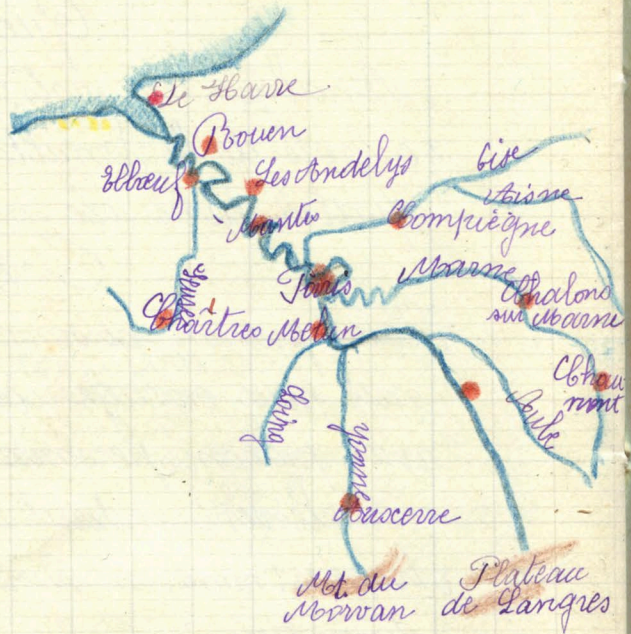 Le Havre
Rouen
Elbœuf
Les Andelys
Oise
Aisne
Mantes
Compiègne
Paris
Marne
Chalons
sur Marne
Eure
Chârtres
Melun
Chau
mont
Loing
Yonne
Aube
Auxerre
Mt. du
Morvan
Plateau
de Langres